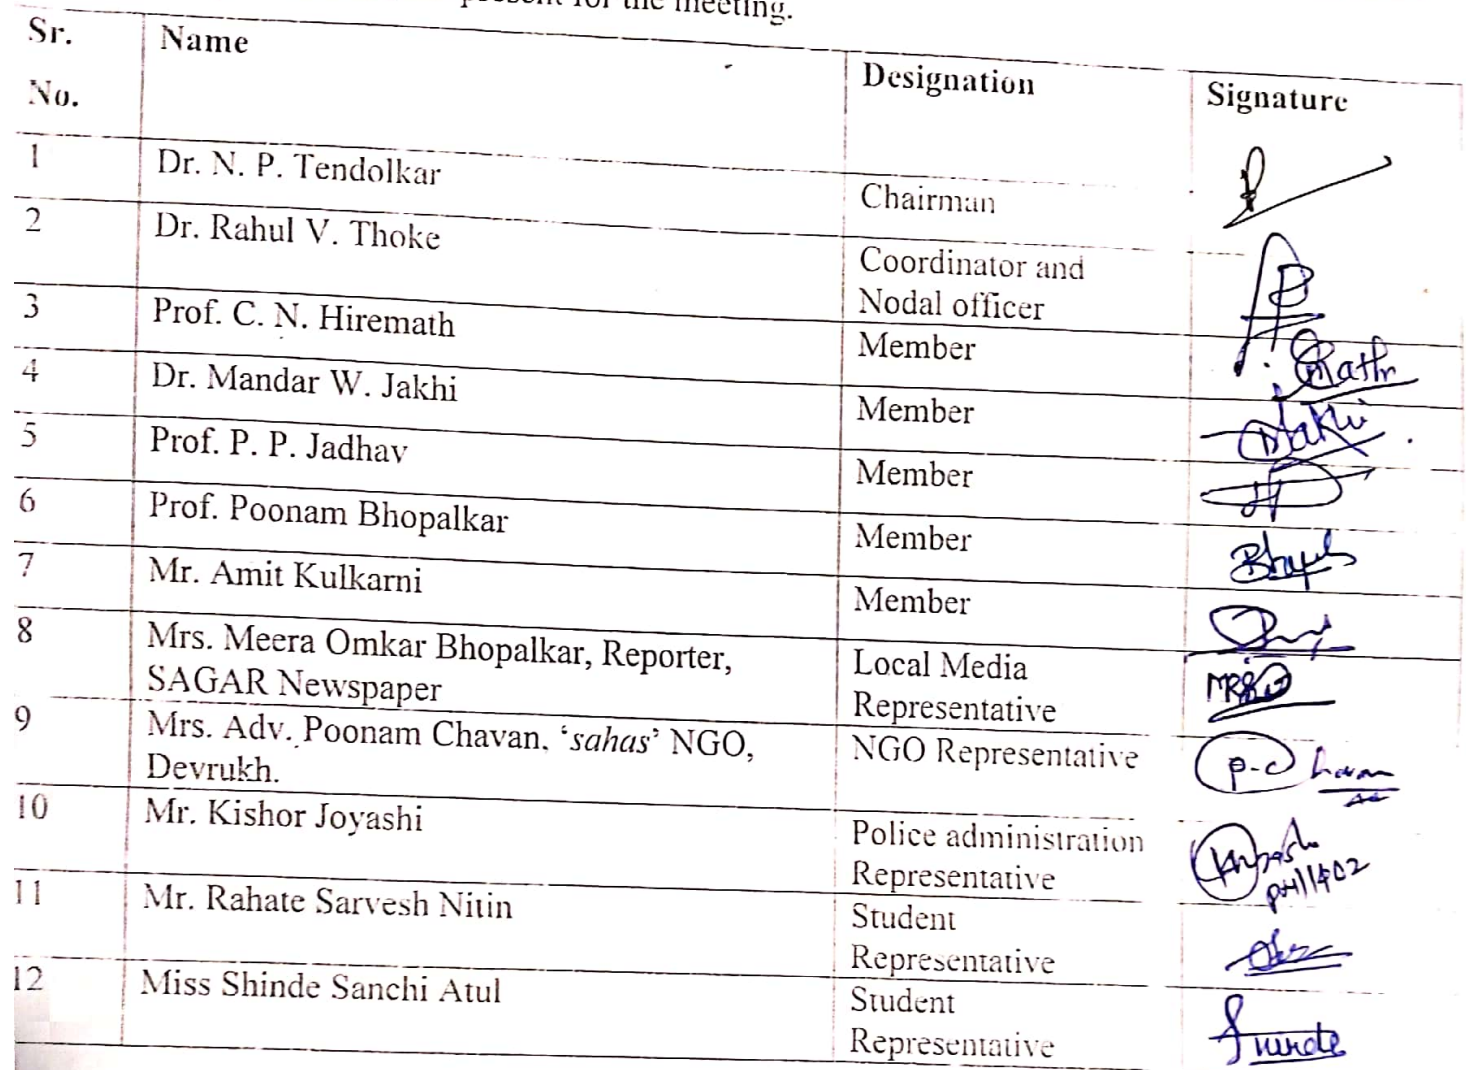 present for the meeting.
Sr. No. Name Designation Signature
1 Dr. N. P. Tendolkar Chairman
2 Dr. Rahul V. Thoke Coordinator and
Nodal officer
3 Prof. C. N. Hiremath Member
4 Dr. Mandar W. Jakhi Member
5 Prof. P. P. Jadhav Member
6 Prof. Poonam Bhopalkar Member
7 Mr. Amit Kulkarni Member
8 Mrs. Meera Omkar Bhopalkar, Reporter, Local Media
SAGAR Newspaper Representative
9 Mrs. Adv. Poonam Chavan, ‘sahas’ NGO, NGO Representative
Devrukh.
10 Mr. Kishor Joyashi Police administration
Representative
11 Mr. Rahate Sarvesh Nitin Student
Representative
12 Miss Shinde Sanchi Atul Student
Representative